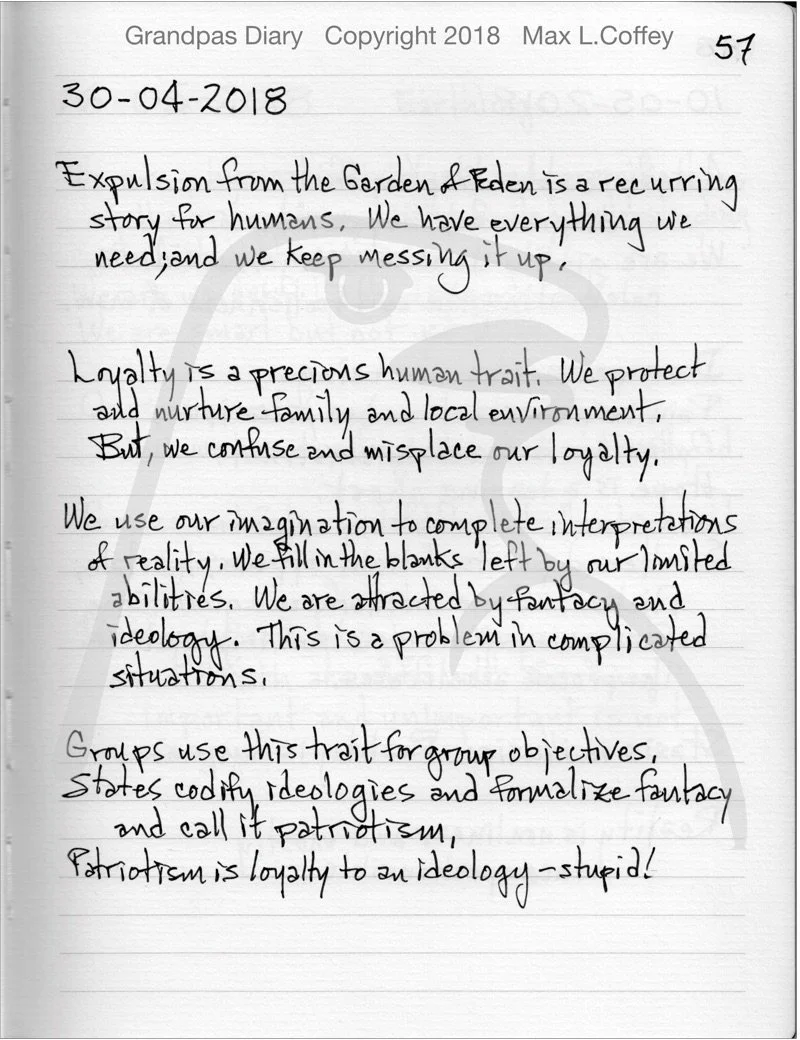 Grandpas Diary Copyright 2018 Max L.Coffey
57
30-04-2018
Expulsion from the Garden of Eden is a recurring
story for humans. We have everything we
need; and we keep messing it up.
Loyalty is a precious human trait. We protect
and nurture family and local environment.
But, we confuse and misplace our loyalty.
We use our imagination to complete interpretations
of reality. We fill in the blanks left by our limited
abilities. We are attracted by fantacy and
ideology. This is a problem in complicated
situations.
Groups use this trait for group objectives.
States codify ideologies and formalize fantacy
and call it patriotism,
Patriotism is loyalty to an ideology - stupid!